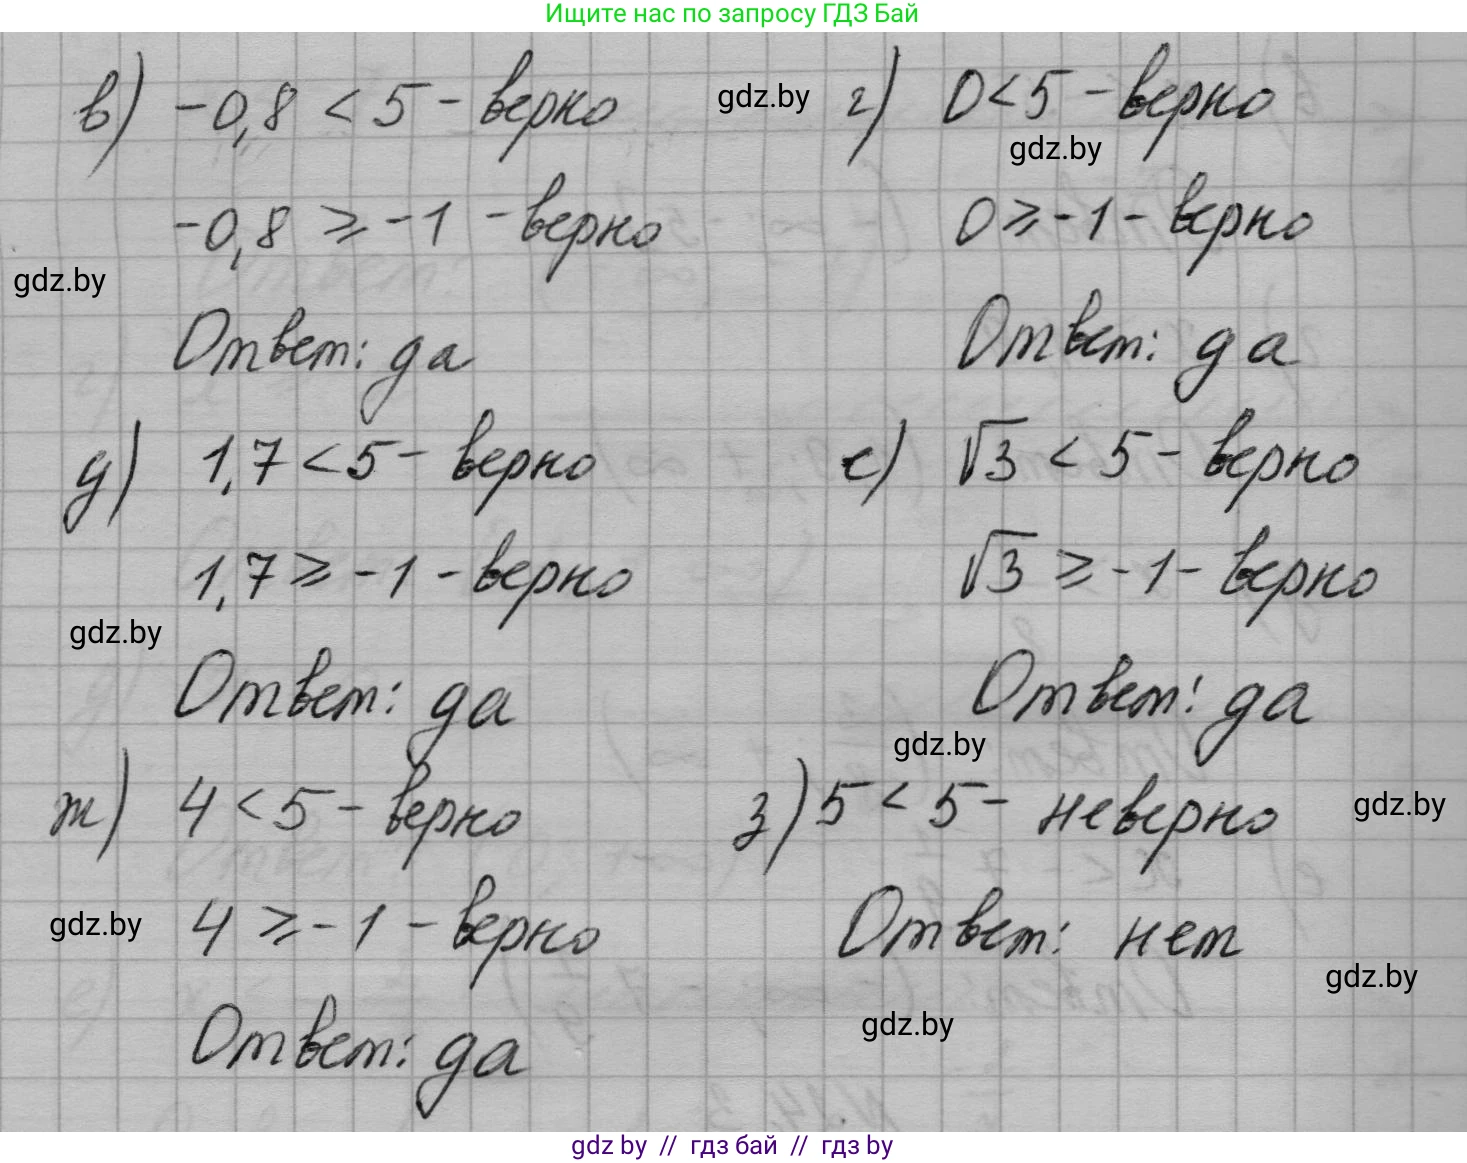 Ищите нас по запросу ГДЗ Бай
в) -0,8 < 5 - верно
gdz.by
г) 0 < 5 - верно
gdz.by
-0,8 ⩾ -1 - верно
0 ⩾ -1 - верно
gdz.by
Ответ: да
Ответ: да
д) 1,7 < 5 - верно
е) √3 < 5 - верно
1,7 ⩾ -1 - верно
√3 ⩾ -1 - верно
gdz.by
Ответ: да
Ответ: да
gdz.by
ж) 4 < 5 - верно
з) 5 < 5 - неверно
gdz.by
4 ⩾ -1 - верно
gdz.by
Ответ: нет
gdz.by
gdz.by
Ответ: да
gdz by // гдз бай // гдз by